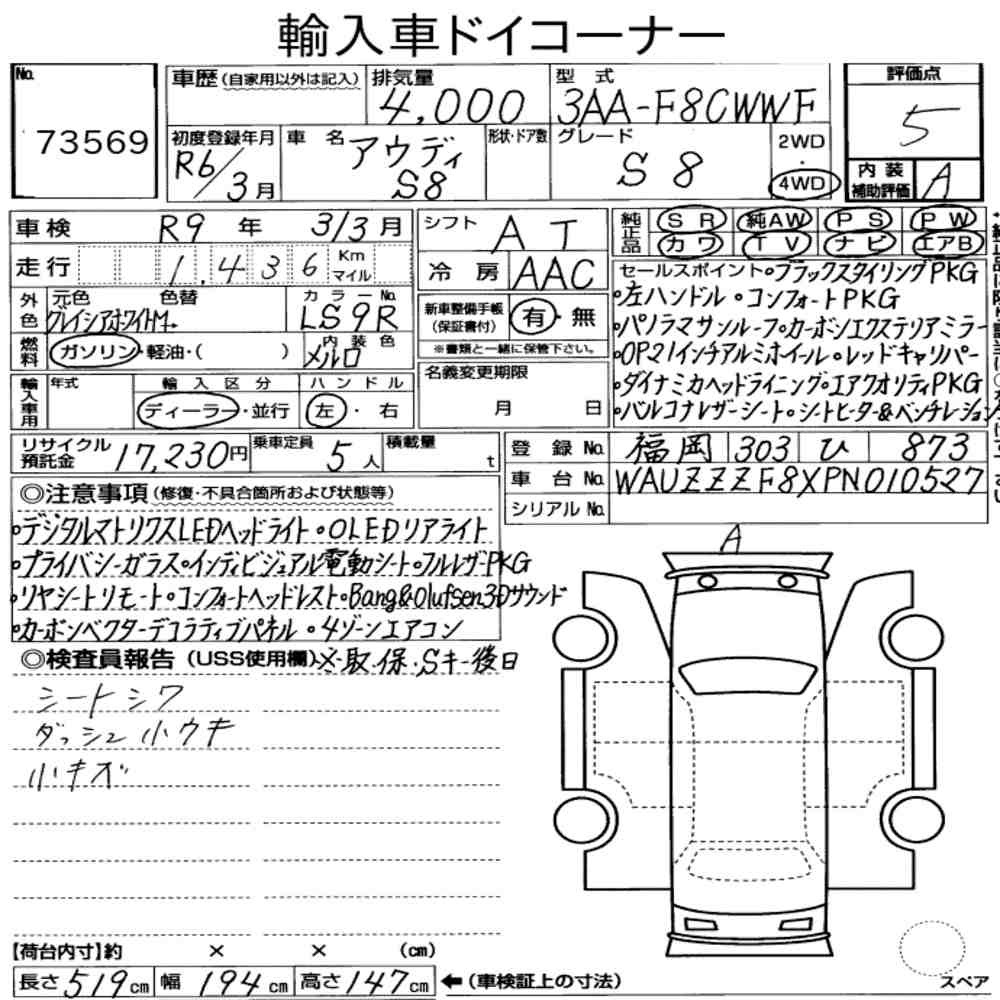 輸入車ドイコーナー
No. 73569
車歴 (自家用以外は記入) 排気量 4,000 型式 3AA-F8CWWF
評価点 5
初度登録年月 R6/3月 車名 アウディ S8 形状・ドア数 グレード S8 2WD・4WD
内装補助評価 A
車検 R9年 3/3月
走行 1,436 Km マイル
外色 元色 グレイシアホワイトM+ 色替 カラーNo. LS9R
燃料 ガソリン・軽油・( ) 内装色 メルロ
輸入車用 年式 輸入区分 ディーラー・並行 ハンドル 左・右
シフト AT
冷房 AAC
新車整備手帳(保証書付) 有・無
※書類と一緒に保管下さい。
名義変更期限 月 日
純正品 SR 純AW PS PW
カワ TV ナビ エアB
セールスポイント・ブラックスタイリングPKG
・左ハンドル・コンフォートPKG
・パノラマサンルーフ・カーボンエクステリアミラー
・OP21インチアルミホイール・レッドキャリパー
・ダイナミカヘッドライニング・エアクオリティPKG
・バルコナレザーシート・シートヒーター&ベンチレーション
リサイクル預託金 17,230円 乗車定員 5人 積載量 t
登録No. 福岡 303 ひ 873
車台No. WAUZZZF8XPN010527
シリアルNo.
◎注意事項(修復・不具合箇所および状態等)
・デジタルマトリクスLEDヘッドライト・OLEDリアライト
・プライバシーガラス・インディビジュアル電動シート・フルレザーPKG
・リヤシートリモート・コンフォートヘッドレスト・Bang&Olufsen3Dサウンド
・カーボンベクターデコラティブパネル・4ゾーンエアコン
◎検査員報告(USS使用欄)※取.保.Sキー後日
シートシワ
ダッシュ小ウキ
小キズ
A
【荷台内寸】約 × × (cm)
長さ519cm 幅194cm 高さ147cm ←(車検証上の寸法)
スペア